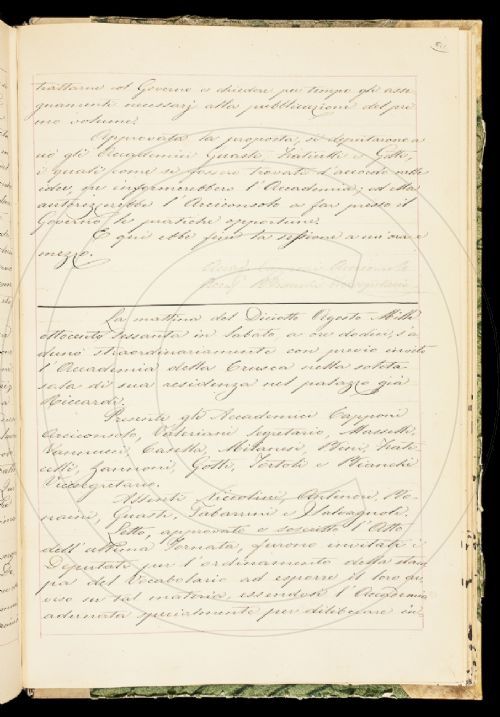 trattarne col Governo e chiedere per tempo gli asse
gnamenti necessarj alla pubblicazione del pri
mo volume.
Approvata la proposta, si deputarono a
ciò gli Accademici Guasti, Tratielli e Gotti,
i quali come si fossero trovati d'accordo nelle
idee, ne informerebbero l'Accademia; ed ella
autorizzerebbe l'Arciconsolo a far presso il
Governo le pratiche opportune.
E qui ebbe fine la sessione a un'ora e
mezzo.
Arciconsolo
La mattina del Diciotto Agosto Mille
ottocento sessanta in Sabato, a ore dodici, s'a
dunò straordinariamente con previo invito
l'Accademia della Crusca nella solita
sala di sua residenza nel palazzo già
Riccardi.
Presenti gli Accademici Capponi
Arciconsolo, Valeriani Segretario, Masselli,
Vannucci, Casella, Milanesi, Bini, Frati
celli, Zannoni, Gotti, Tortoli e Bianchi
Vicesegretario.
Assenti Nicolini, Antinori, Bo
naini, Guasti, Tabarrini e Salvagnoli.
Letto, approvato e soscritto l'Atto
dell'ultima Tornata, furono invitati i
Deputati per l'ordinamento della stam
pa del Vocabolario ad esporre il loro av
viso su tal materia, essendosi l'Accademia
adunata specialmente per deliberare in